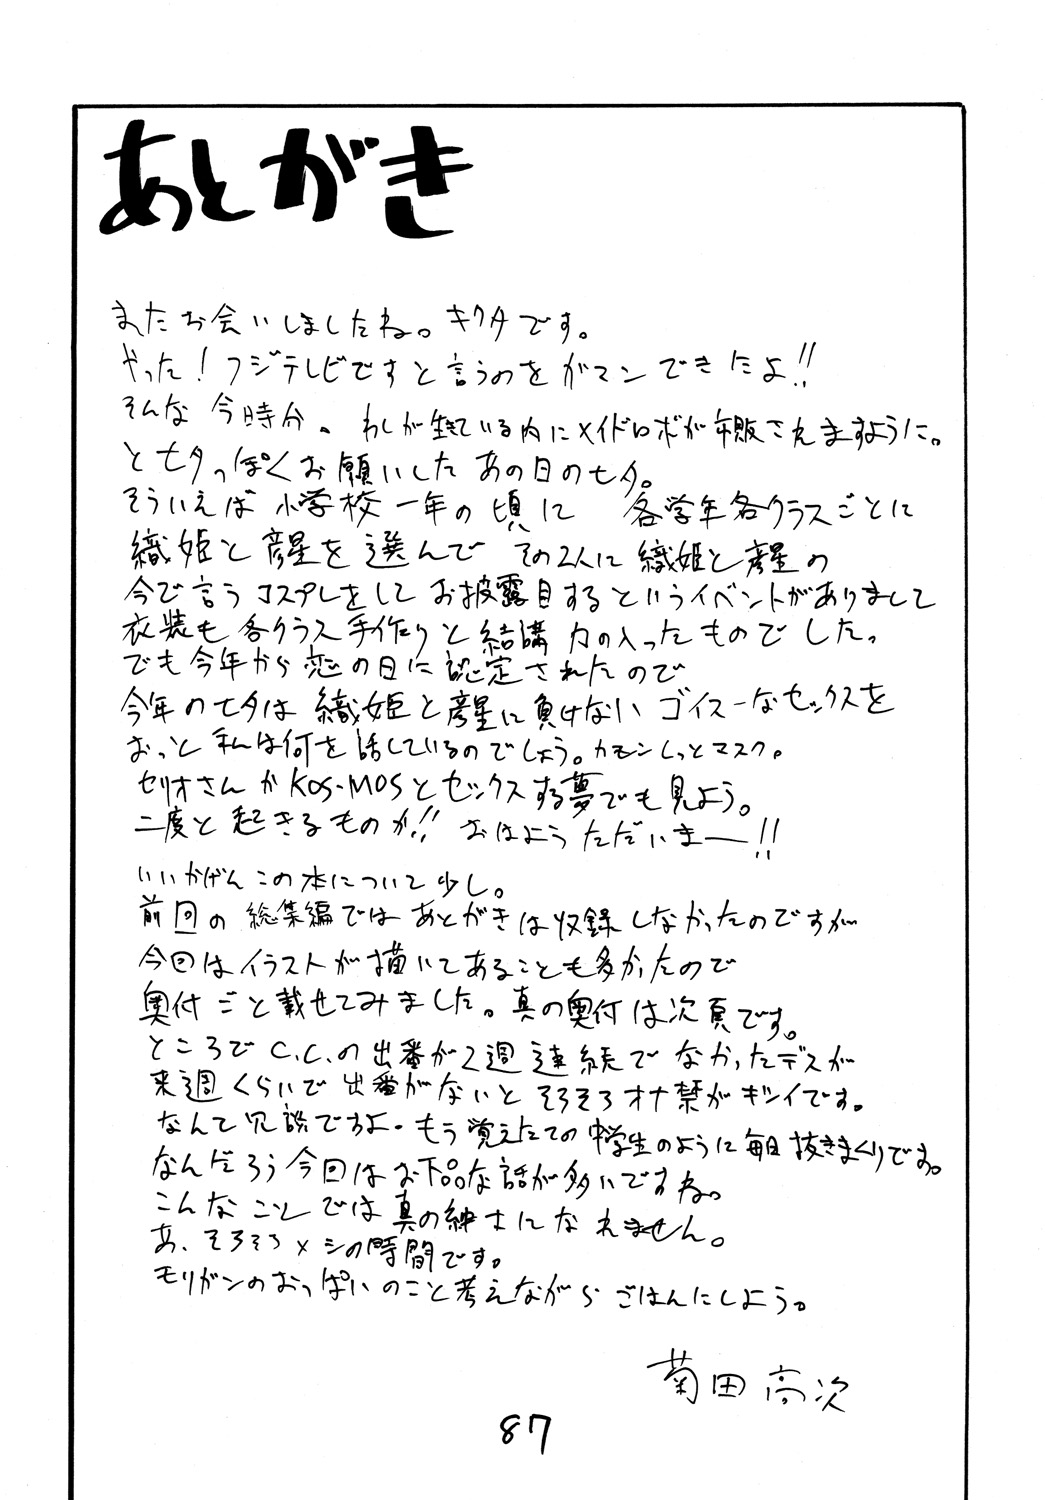 あとがき
またお会いしましたね。キクタです。
やった！フジテレビですと言うのをガマンできたよ!!
そんな今時分。わしが生きている内にメイドロボが市販されますように。
と七夕っぽくお願いしたあの日の七夕。
そういえば小学校一年の頃に 各学年各クラスごとに
織姫と彦星を選んで その2人に織姫と彦星の
今で言うコスプレをしてお披露目するというイベントがありまして
衣装も各クラス手作りと結構力の入ったものでした。
でも今年から恋の日に認定されたので
今年の七夕は織姫と彦星に負けないゴイスーなセックスを
おっと私は何を話しているのでしょう。カモンしっとマスク。
セリオさんがKOS-MOSとセックスする夢でも見よう。
二度と起きるものか!! おはようただいまー!!
いいかげんこの本について少し。
前回の総集編ではあとがきは収録しなかったのですが
今回はイラストが描いてあることも多かったので
奥付ごと載せてみました。真の奥付は次頁です。
ところでC.C.の出番が2週連続でなかったデスが
来週くらいで出番がないとそろそろオナ禁がギシイです。
なんて冗談ですよ。もう覚えたての中学生のように毎日抜きまくりです。
なんだろう今回はお下品な話が多いですね。
こんなことでは真の紳士になれません。
あ、そろそろメシの時間です。
モリガンのおっぱいのこと考えながらごはんにしよう。
菊田高次
87